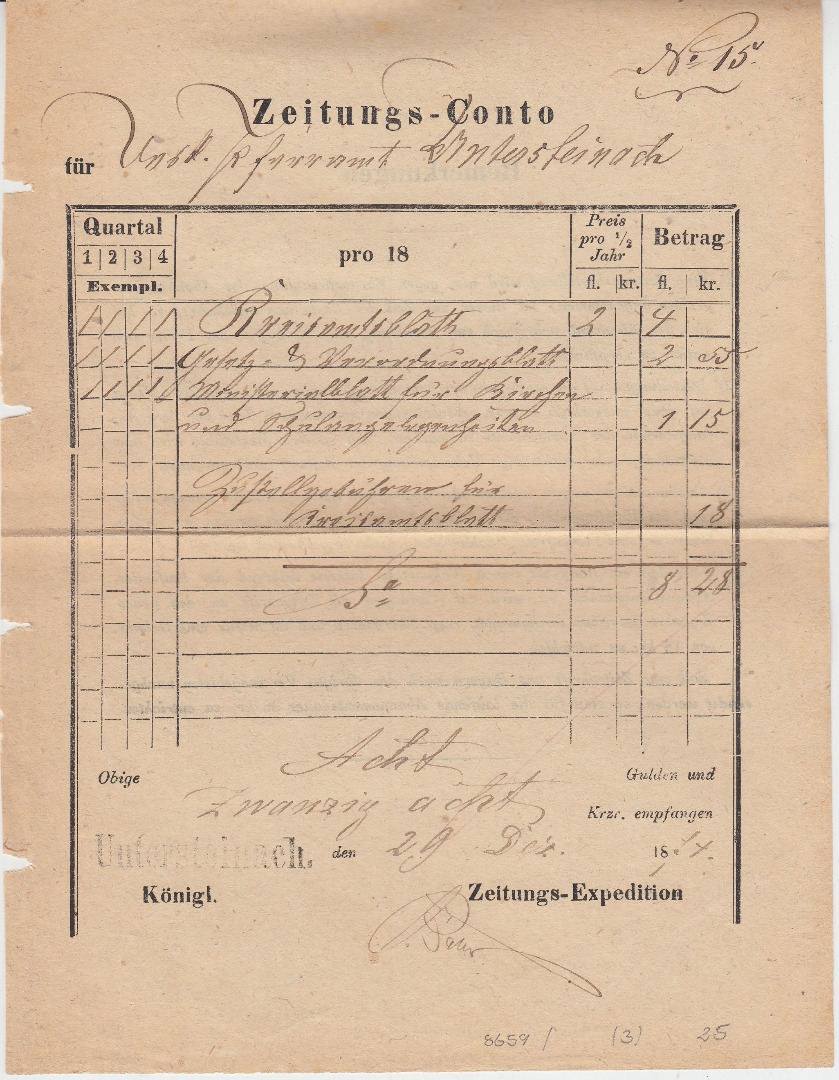 No 15.
Zeitungs-Conto
für Pfarramt Untersteinach
Quartal
pro 18
Preis
pro 1/2
Jahr
Betrag
1 | 2 | 3 | 4
Exempl.
fl. kr. fl. kr.
1 1 1 1 Kreisamtsblatt 2 4
1 1 1 1 Gesetz- & Verordnungsblatt 2 55
1 1 1 1 Ministerialblatt für Kirchen
und Schulangelegenheiten 1 15
Zustellgebühren für
Kreisamtsblatt 18
Sa 8 28
Obige Acht Gulden und
Zwanzig acht Krzr. empfangen
Untersteinach. den 29 Dez. 18
Königl. Zeitungs-Expedition
8659 / (3) 25